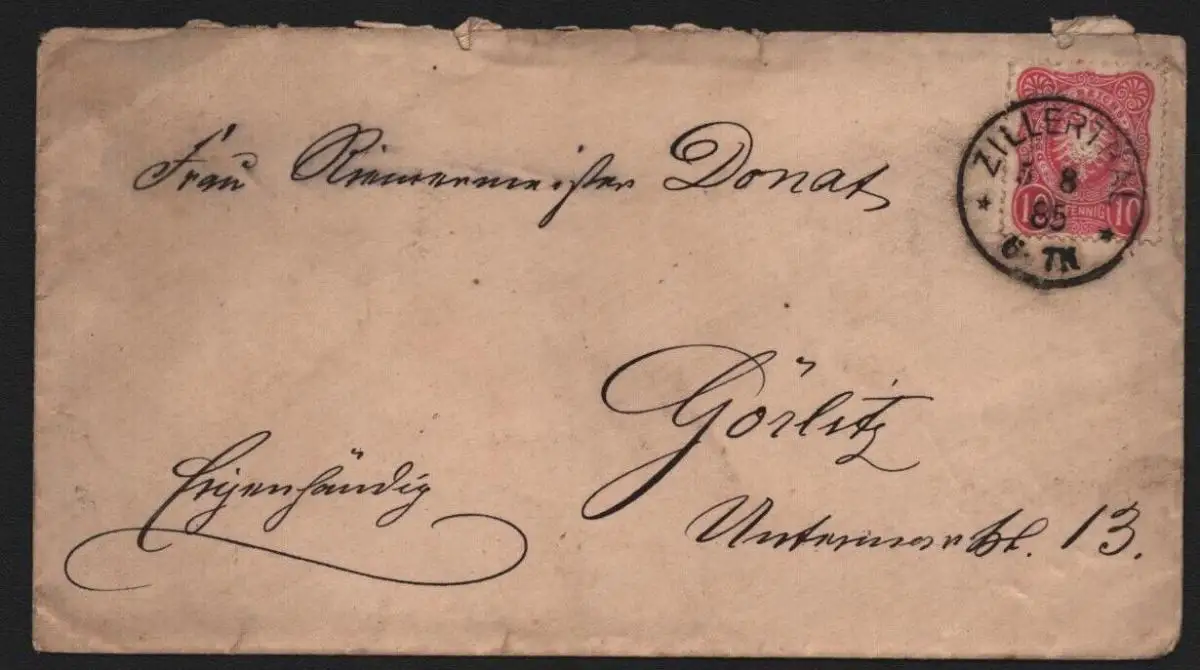 Frau Riemermeister Donat
ZILLERTHAL
8
85
6-7N
10 PFENNIG 10
Görlitz
Eigenhändig
Untermarkt. 13.